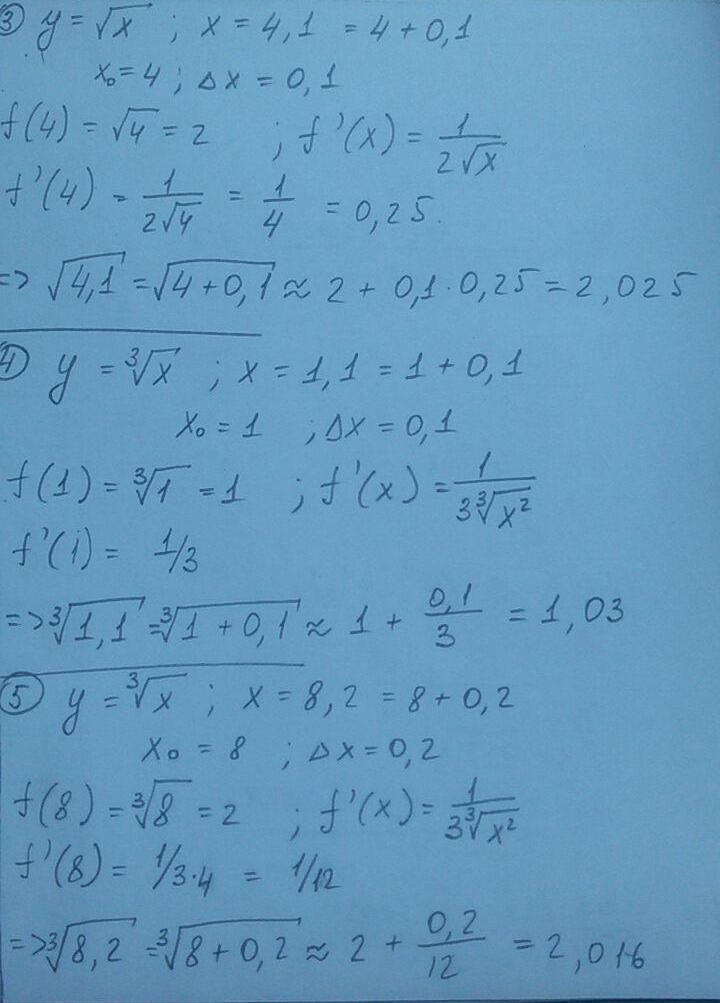 ③ y = √x ; x = 4,1 = 4 + 0,1
x₀ = 4 ; Δx = 0,1
f(4) = √4 = 2 ; f'(x) = 1/(2√x)
f'(4) = 1/(2√4) = 1/4 = 0,25.
=> √4,1 = √(4+0,1) ≈ 2 + 0,1·0,25 = 2,025
④ y = ∛x ; x = 1,1 = 1 + 0,1
x₀ = 1 ; Δx = 0,1
f(1) = ∛1 = 1 ; f'(x) = 1/(3∛x²)
f'(1) = 1/3
=> ∛1,1 = ∛(1+0,1) ≈ 1 + 0,1/3 = 1,03
⑤ y = ∛x ; x = 8,2 = 8 + 0,2
x₀ = 8 ; Δx = 0,2
f(8) = ∛8 = 2 ; f'(x) = 1/(3∛x²)
f'(8) = 1/3·4 = 1/12
=> ∛8,2 = ∛(8+0,2) ≈ 2 + 0,2/12 = 2,016